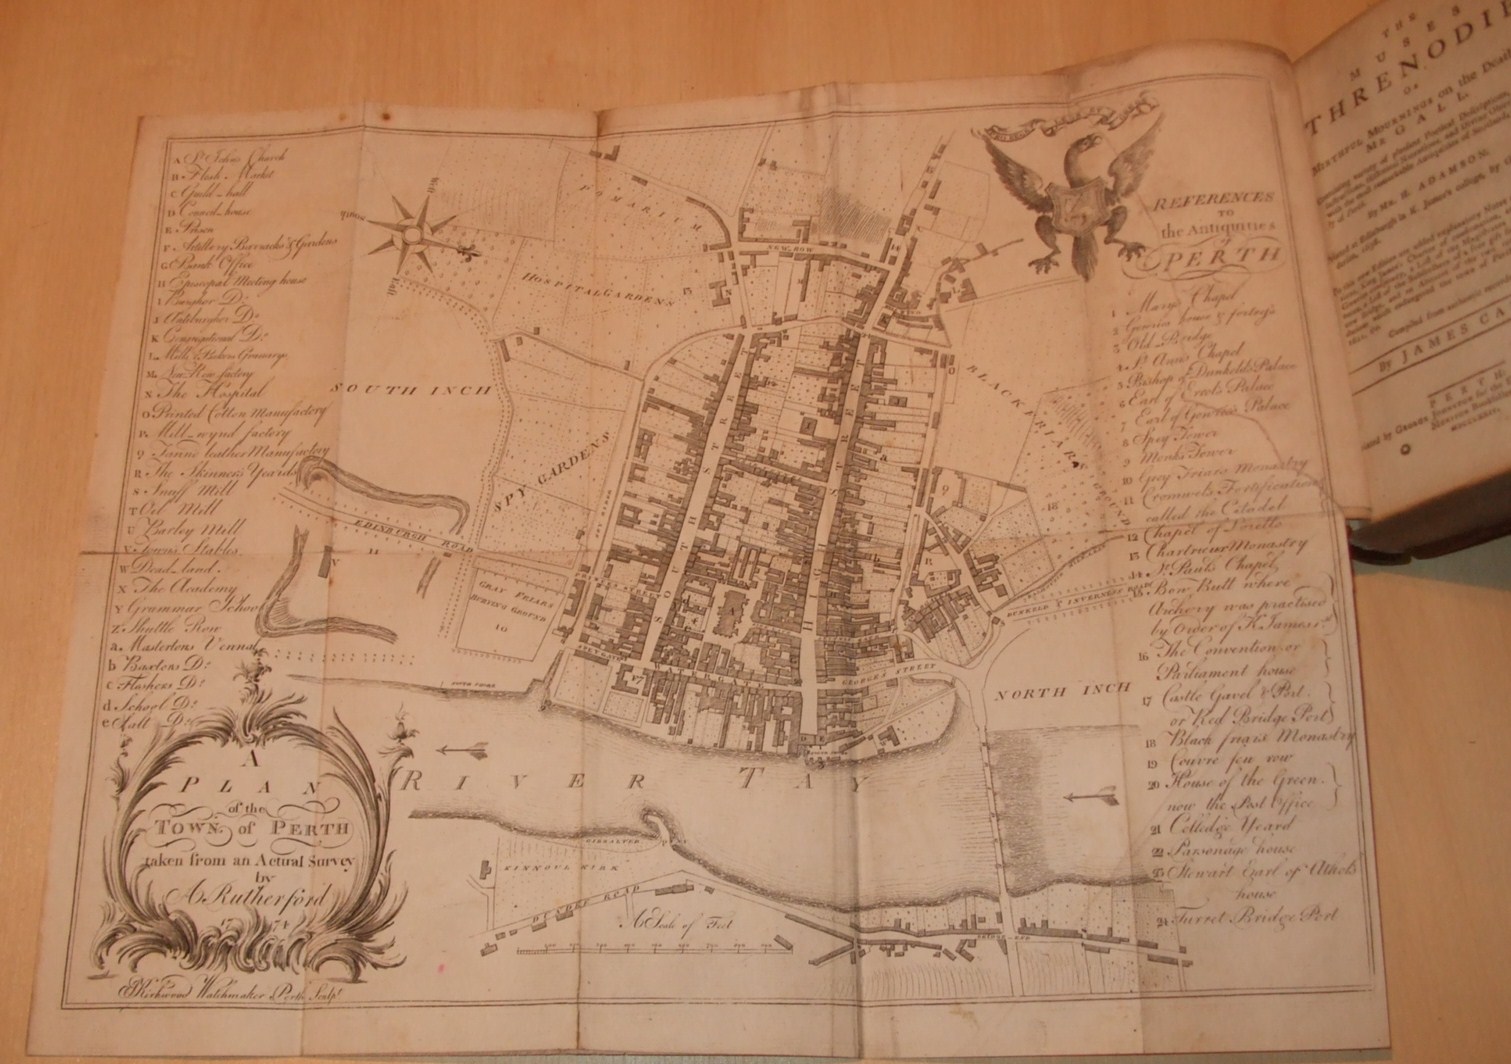 A St Johns Church
B Flesh Market
C Guild-hall
D Council-house
E Prison
F Artillery Barracks & Gardens
G Bank Office
H Episcopal Meeting house
I Burgher Do.
J Antiburgher Do.
K Congregational Do.
L Mill & Bakers Granarys
M New Row factory
N The Hospital
O Printed Cotton Manufactory
P Mill-wynd factory
Q Tann'd leather Manufactory
R The Skinners Yeards
S Snuff Mill
T Oil Mill
U Barley Mill
V Towns Stables
W Dead-land.
X The Academy
Y Grammar School
Z Shuttle Row
a Mastertons Vennal
b Baxters Do.
c Fleshers Do.
d School Do.
e Salt Do.
A
PLAN
of the
TOWN of PERTH
taken from an Actual Survey
by
A Rutherford
1774
Kirkwood Watchmaker Perth Sculpt.
POMARIUM
HOSPITAL GARDENS
NEW ROW
SOUTH INCH
SPY GARDENS
EDINBURGH ROAD
GRAY FRIARS
BURYING GROUND
10
SOUTH STREET
HIGH STREET
WATERGATE
GEORGES STREET
BLACK FRIARS GROUND
18
DUNKELD & INVERNESS ROAD
NORTH INCH
RIVER TAY
KINNOUL KIRK
DUNDEE ROAD
A Scale of Feet
BRIDGE-END
REFERENCES
TO
the Antiquities
of
PERTH
1 Marys Chapel
2 Gowrie house & fortress
3 Old Bridge
4 St Anns Chapel
5 Bishop of Dunkelds Palace
6 Earl of Errols Palace
7 Earl of Gowries Palace
8 Spey Tower
9 Monks Tower
10 Grey Friars Monastry
11 Cromwels Fortification
called the Citadel
12 Chapel of Loretto
13 Chartreux Monastry
14 St Pauls Chapel
15 Bow Butt where
Archery was practised
by Order of K. James 1st
16 The Convention or
Parliament house
17 Castle Gavel & Port
or Red Bridge Port
18 Black friars Monastry
19 Couvre feu row
20 House of the Green
now the Post Office
21 Colledge Yeard
22 Parsonage house
23 Stewart Earl of Athols
house
24 Turret Bridge Port
THE
MUSES
THRENODIE
OR
MIRTHFUL MOURNINGS on the Death
of MR GALL
By MR. H. ADAMSON
By JAMES CA
PERTH